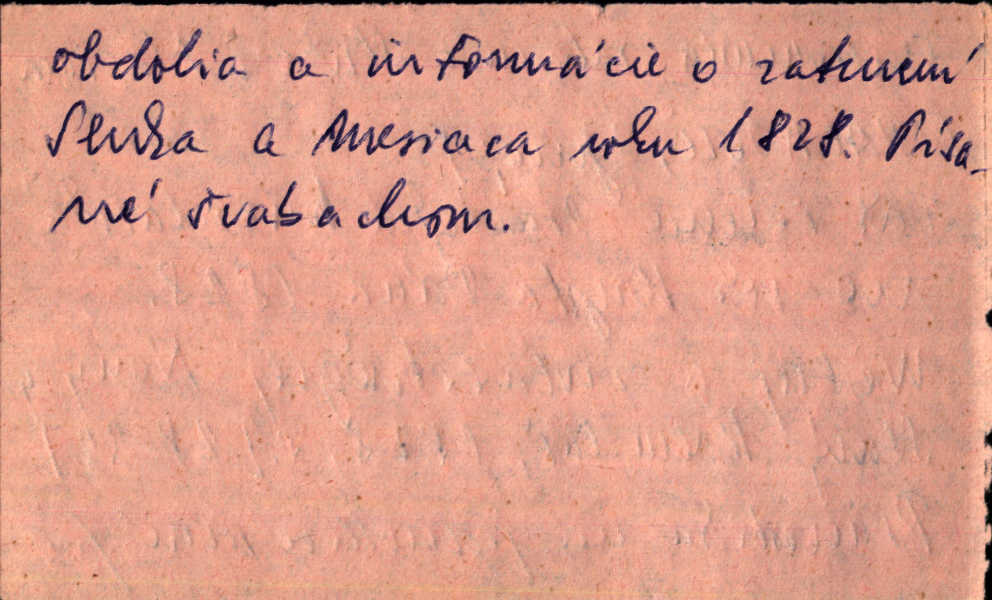 obdobia a informácie o zatmení
Slnka a mesiaca roku 1828. Písa-
né švabachom.